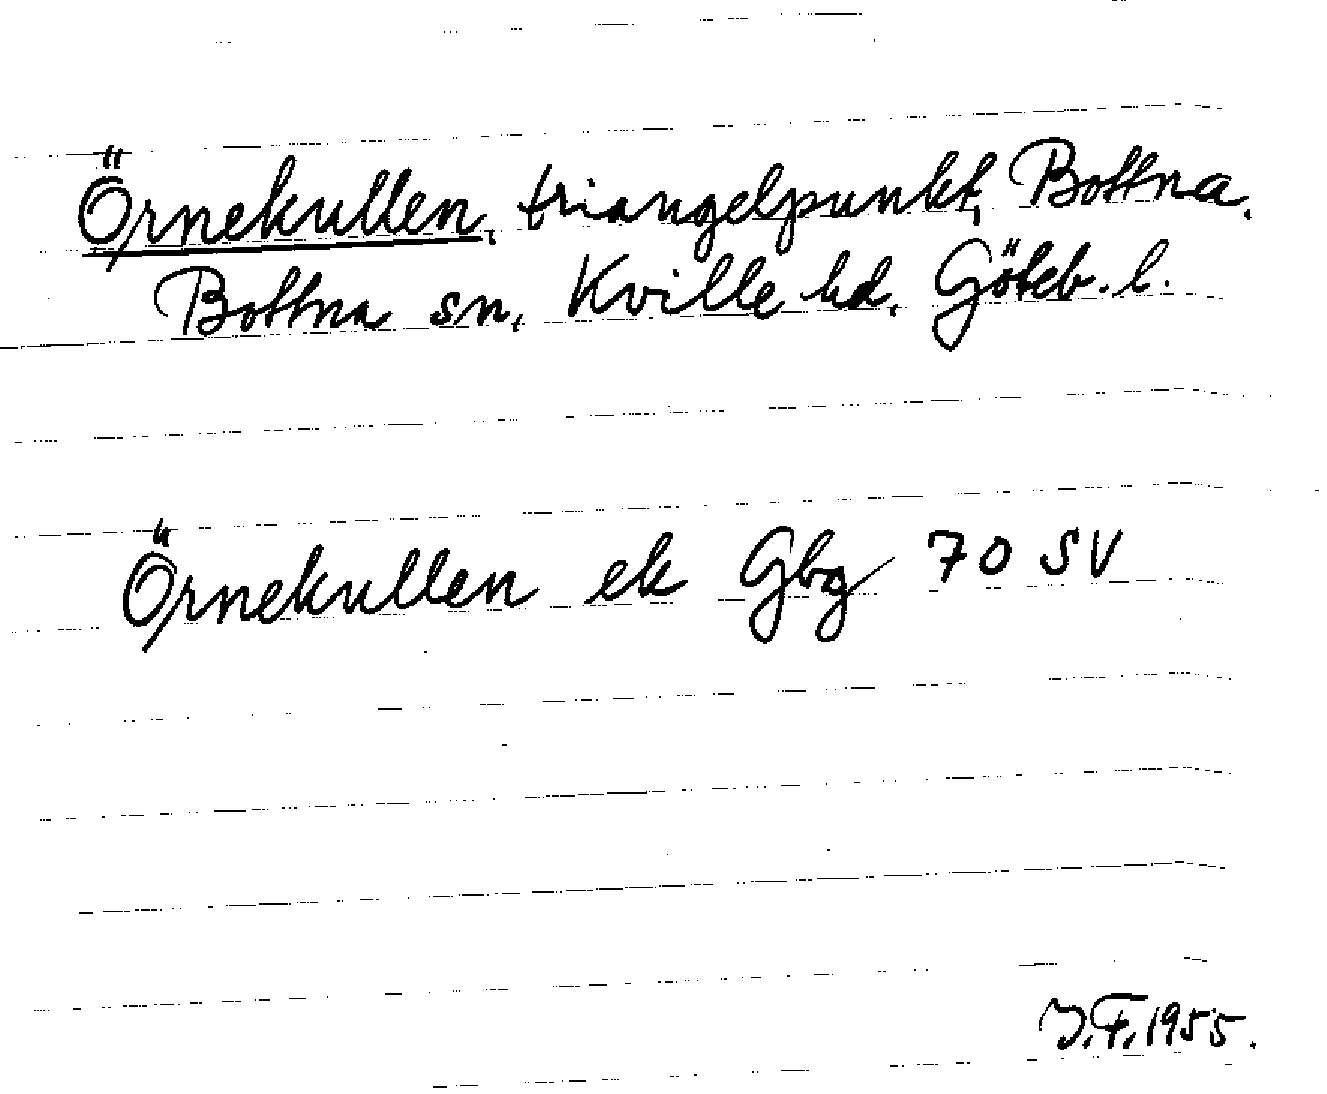 Örnekullen, triangelpunkt, Bottna.
Bottna sn, Kville hd. Göteb. l.
Örnekullen ek Gbg 70 SV
J.F. 1955.